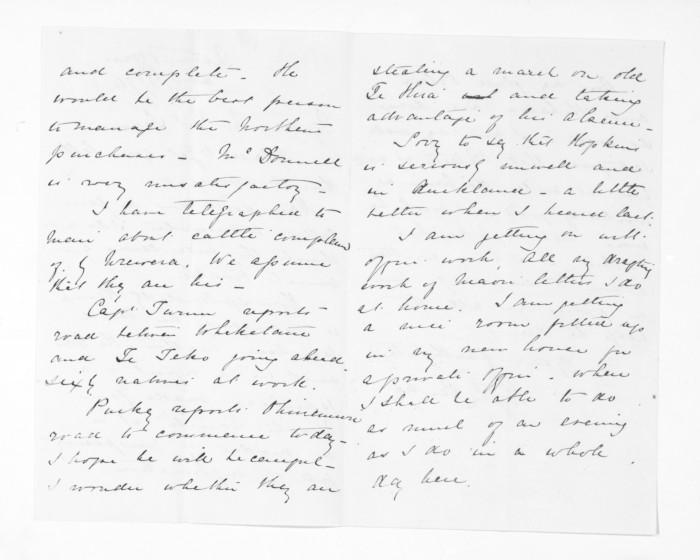 and complete - He
would be the best person
to manage the Northern
purchases - McDonnell
is very unsatisfactory -
I have telegraphed to
Mair about cattle complained
of by Urewera. We assume
that they are his -
Capt. Turner reports
road between Whakatane
and Te Teko going ahead.
sixty natives at work.
Puckey reports Ohinemuri
road to commence today -
I hope he will be careful -
I wonder whether they are
stealing a march on old
Te Hira and taking
advantage of his absence -
Sorry to say that Hopkins
is seriously unwell and
in Auckland - a little
better when I heard last.
I am getting on with
office work, all my drafting
work of Maori letters I do
at home. I am getting
a nice room fitted up
in my new house for
a private office. when
I shall be able to do
as much of an evening
as I do in a whole
day here.